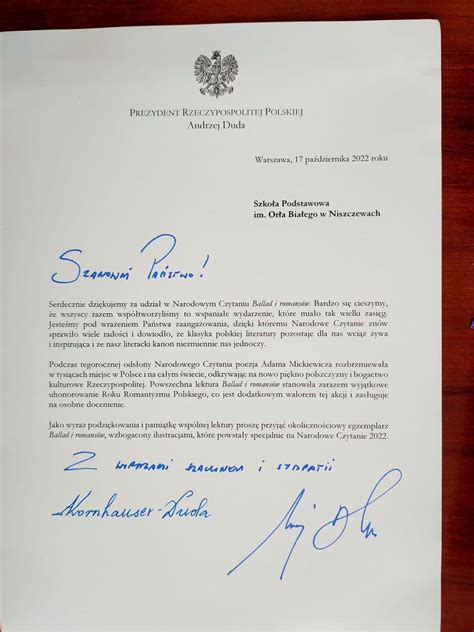 PREZYDENT RZECZYPOSPOLITEJ POLSKIEJ
Andrzej Duda
Warszawa, 17 października 2022 roku
Szkoła Podstawowa
im. Orła Białego w Niszczewach
Szanowni Państwo!
Serdecznie dziękujemy za udział w Narodowym Czytaniu Ballad i romansów. Bardzo się cieszymy,
że wszyscy razem współtworzyliśmy to wspaniałe wydarzenie, które miało tak wielki zasięg.
Jesteśmy pod wrażeniem Państwa zaangażowania, dzięki któremu Narodowe Czytanie znów
sprawiło wiele radości i dowiodło, że klasyka polskiej literatury pozostaje dla nas wciąż żywa
i inspirująca i że nasz literacki kanon niezmiennie nas jednoczy.
Podczas tegorocznej odsłony Narodowego Czytania poezja Adama Mickiewicza rozbrzmiewała
w tysiącach miejsc w Polsce i na całym świecie, odkrywając na nowo piękno polszczyzny i bogactwo
kulturowe Rzeczypospolitej. Powszechna lektura Ballad i romansów stanowiła zarazem wyjątkowe
uhonorowanie Roku Romantyzmu Polskiego, co jest dodatkowym walorem tej akcji i zasługuje
na osobne docenienie.
Jako wyraz podziękowania i pamiątkę wspólnej lektury proszę przyjąć okolicznościowy egzemplarz
Ballad i romansów, wzbogacony ilustracjami, które powstały specjalnie na Narodowe Czytanie 2022.
Z wyrazami szacunku i sympatii
Kornhauser-Duda